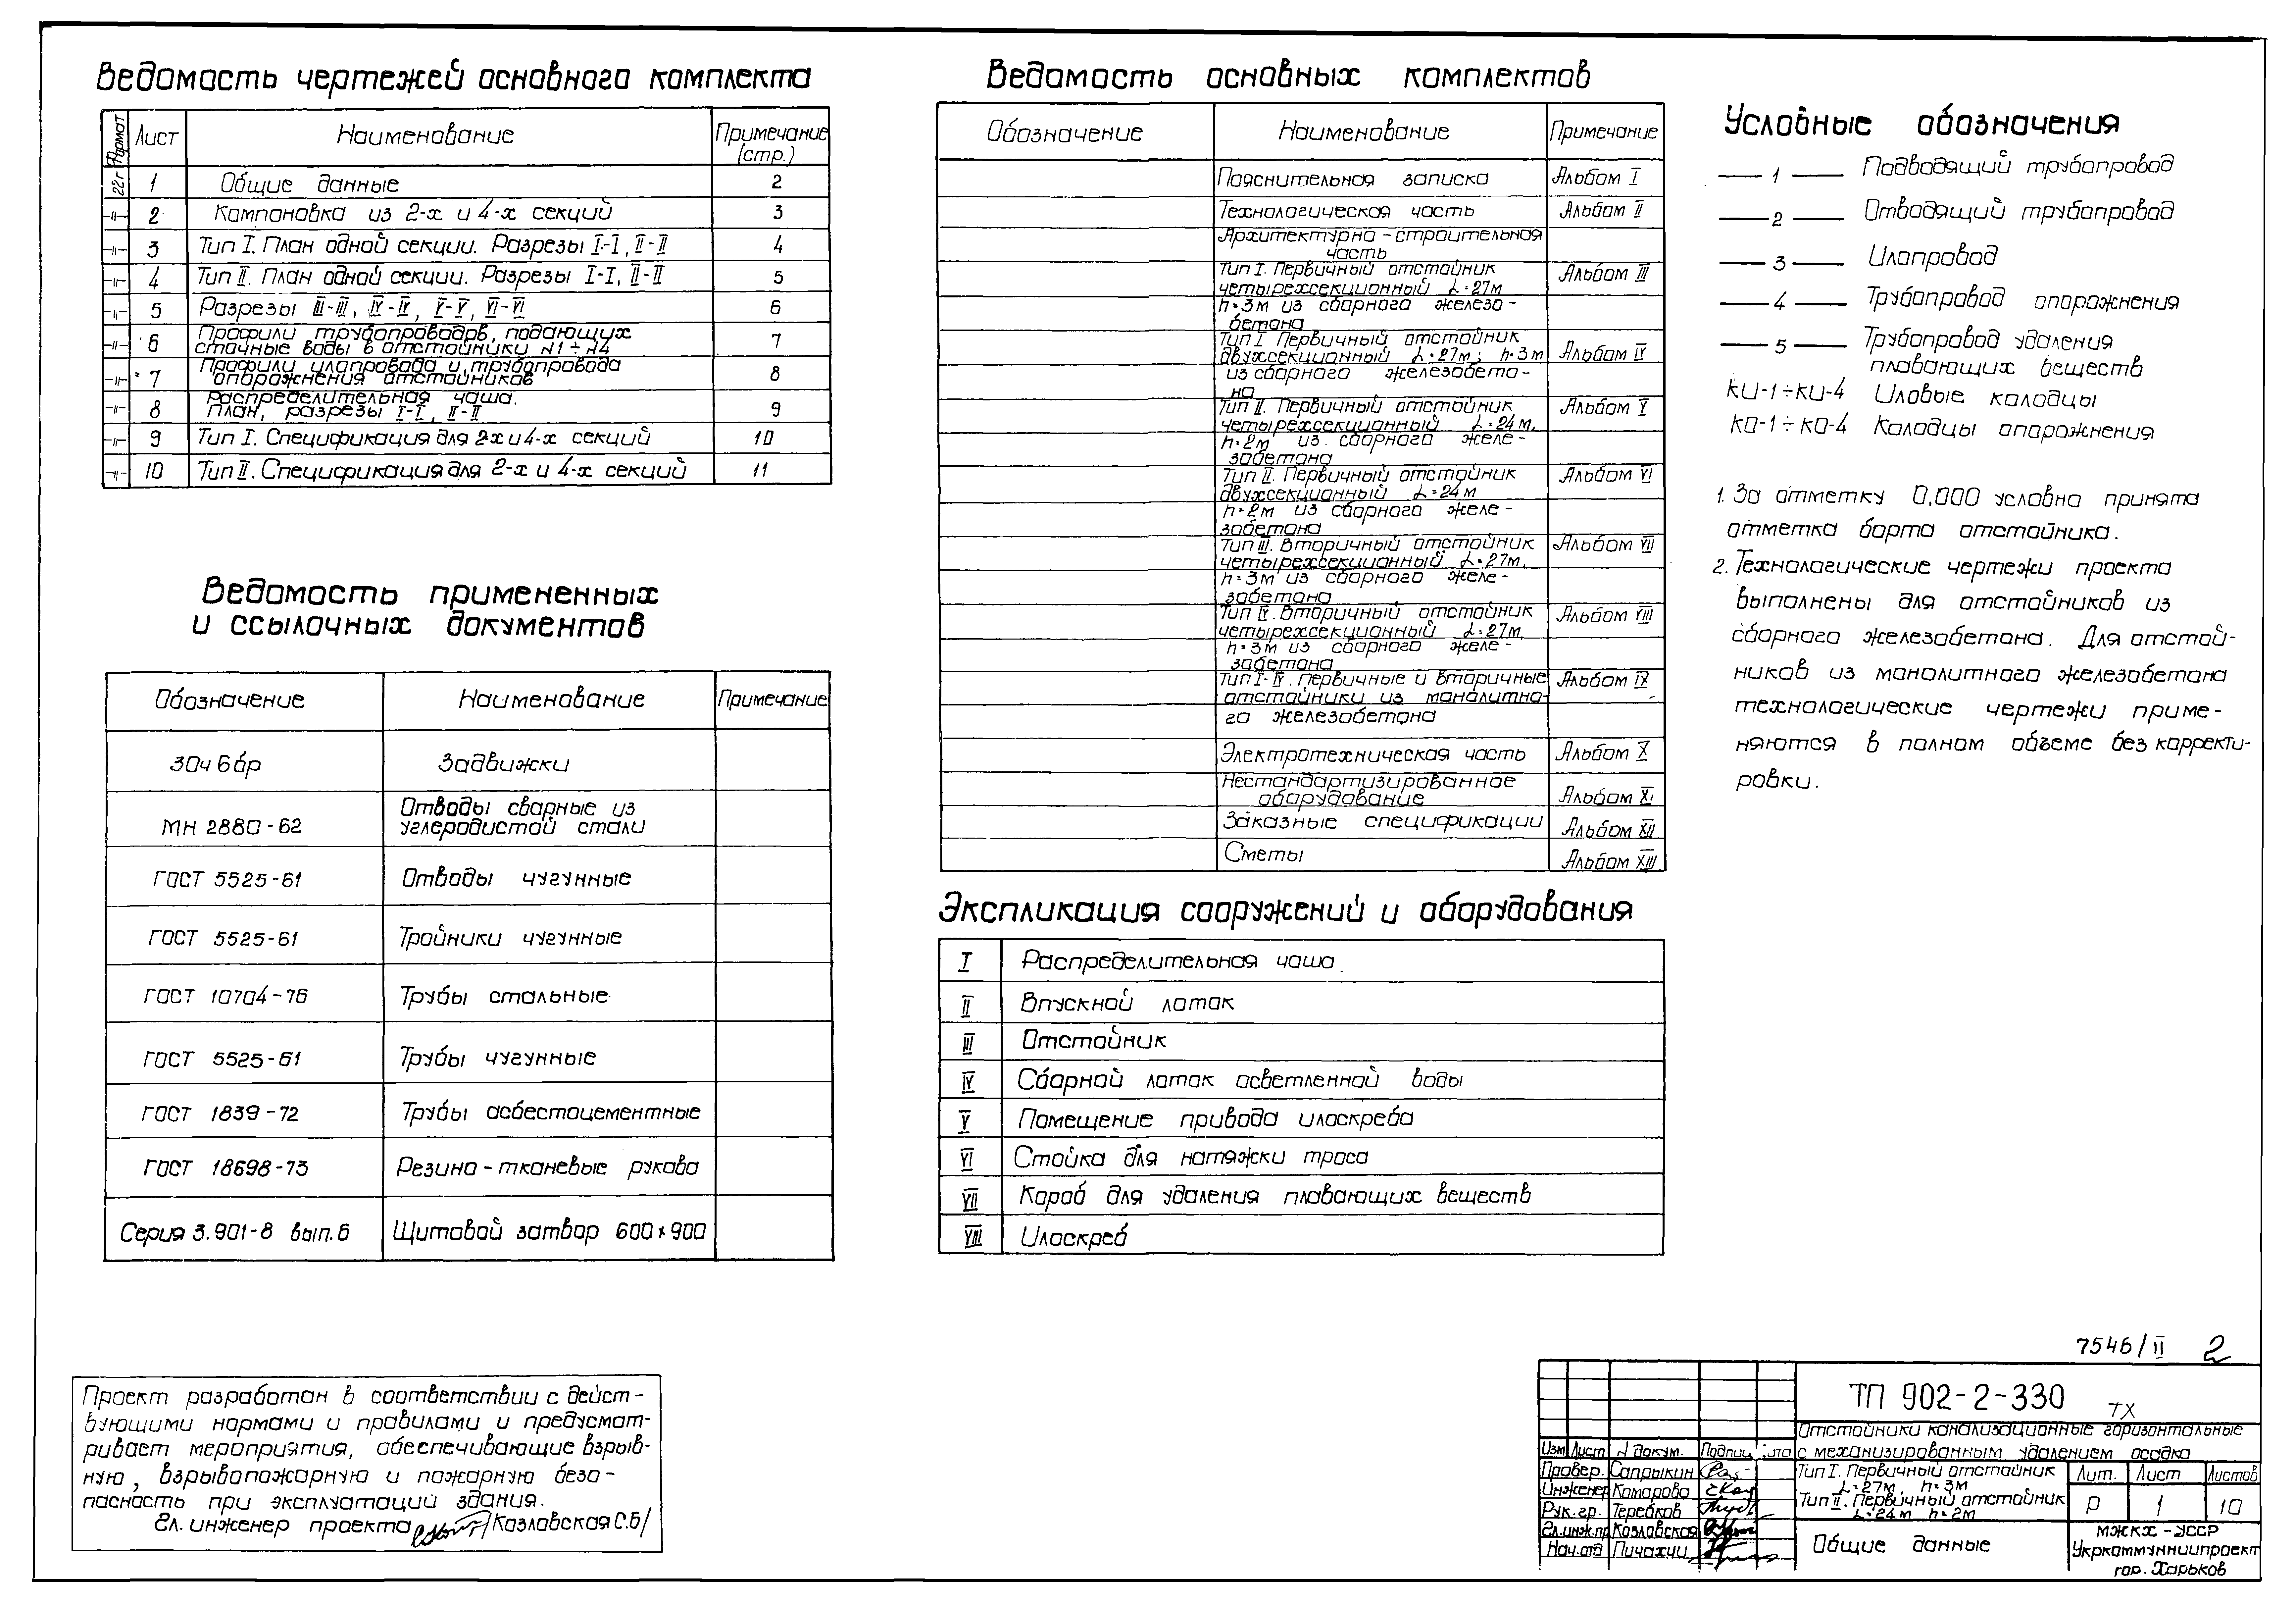 Ведомость чертежей основного комплекта
Формат Лист Наименование Примечание (стр.)
22г 1 Общие данные 2
-"- 2 Компоновка из 2-х и 4-х секций 3
-"- 3 Тип I. План одной секции. Разрезы I-I, II-II 4
-"- 4 Тип II. План одной секции. Разрезы I-I, II-II 5
-"- 5 Разрезы III-III, IV-IV, V-V, VI-VI 6
-"- 6 Профили трубопроводов, подающих
сточные воды в отстойники N1÷N4 7
-"- 7 Профили илопровода и трубопровода
опорожнения отстойников 8
-"- 8 Распределительная чаша.
План, разрезы I-I, II-II 9
-"- 9 Тип I. Спецификация для 2х и 4-х секций 10
-"- 10 Тип II. Спецификация для 2-х и 4-х секций 11
Ведомость примененных
и ссылочных документов
Обозначение Наименование Примечание
30ч 6бр Задвижки
МН 2880-62 Отводы сварные из
углеродистой стали
ГОСТ 5525-61 Отводы чугунные
ГОСТ 5525-61 Тройники чугунные
ГОСТ 10704-76 Трубы стальные
ГОСТ 5525-61 Трубы чугунные
ГОСТ 1839-72 Трубы асбестоцементные
ГОСТ 18698-73 Резино-тканевые рукава
Серия 3.901-8 вып. 6 Щитовой затвор 600×900
Проект разработан в соответствии с дейст-
вующими нормами и правилами и предусмат-
ривает мероприятия, обеспечивающие взрыв-
ную, взрывопожарную и пожарную безо-
пасность при эксплуатаций здания.
Гл. инженер проекта /Козловская С.Б/
Ведомость основных комплектов
Обозначение Наименование Примечание
Пояснительная записка Альбом I
Технологическая часть Альбом II
Архитектурно-строительная
часть
Тип I. Первичный отстойник Альбом III
четырехсекционный L=27м
h=3м из сборного железо-
бетона
Тип I Первичный отстойник
двухсекционный L=27м; h=3м Альбом IV
из сборного железобето-
на
Тип II. Первичный отстойник Альбом V
четырехсекционный L=24м,
h=2м из. сборного желе-
зобетона
Тип II. Первичный отстойник Альбом VI
двухсекционный L=24м
h=2м из сборного желе-
зобетона
Тип III. Вторичный отстойник Альбом VII
четырехсекционный L=27м,
h=3м из сборного желе-
зобетона
Тип IV. Вторичный отстойник Альбом VIII
четырехсекционный L=27м,
h=3м из сборного желе-
зобетона
Тип I-IV. Первичные и вторичные Альбом IX
отстойники из монолитно-
го железобетона
Электротехническая часть Альбом X
Нестандартизированное
оборудование Альбом XI
Заказные спецификации Альбом XII
Сметы Альбом XIII
Экспликация сооружений и оборудования
I Распределительная чаша
II Впускной лоток
III Отстойник
IV Сборной лоток осветленной воды
V Помещение привода илоскреба
VI Стойка для натяжки троса
VII Короб для удаления плавающих веществ
VIII Илоскреб
Условные обозначения
— 1 — Подводящий трубопровод
— 2 — Отводящий трубопровод
— 3 — Илопровод
— 4 — Трубопровод опорожнения
— 5 — Трубопровод удаления
плавающих веществ
КИ-1÷КИ-4 Иловые колодцы
КО-1÷КО-4 Колодцы опорожнения
1. За отметку 0,000 условно принята
отметка борта отстойника.
2. Технологические чертежи проекта
выполнены для отстойников из
сборного железобетона. Для отстой-
ников из монолитного железобетона
технологические чертежи приме-
няются в полном объеме без корректи-
ровки.
7546/II 2
ТП 902-2-330 ТХ
Отстойники канализационные горизонтальные
с механизированным удалением осадка
Изм Лист N докум. Подпись
Провер. Сапрыкин
Инженер Комарова
Рук. гр. Теребков
Гл. инж. пр Козловская
Нач. отд Пичахчи
Тип I. Первичный отстойник
L=27м h=3м
Тип II. Первичный отстойник
L=24м h=2м
Лит. Лист Листов
Р 1 10
Общие данные
МЖКХ-УССР
Укркоммунниипроект
гор. Харьков